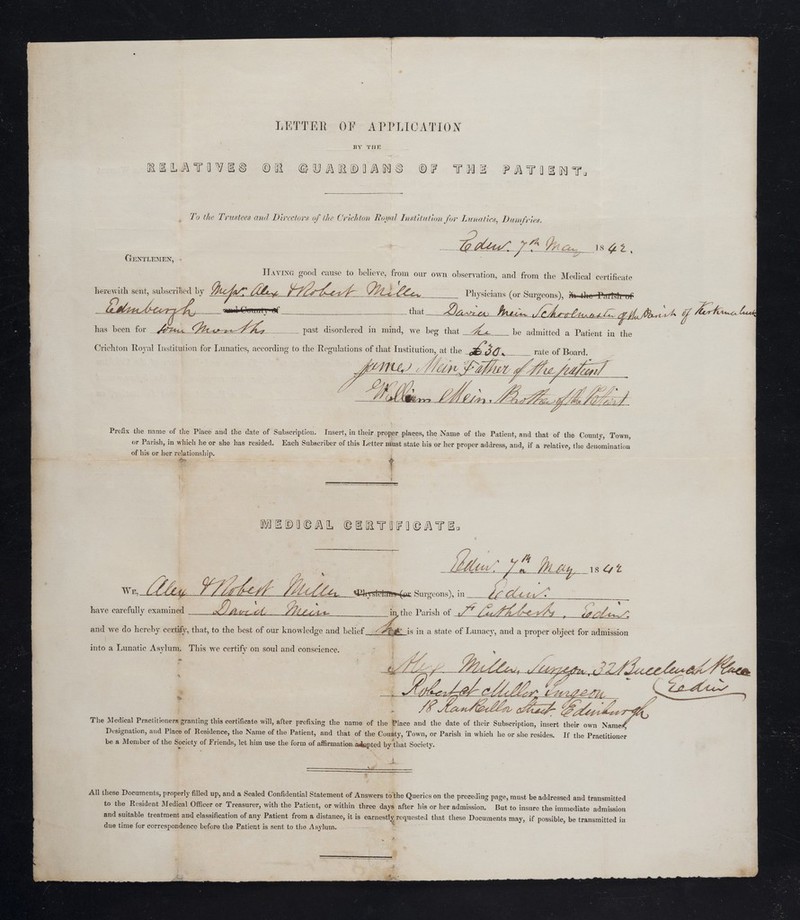 LETTER OF APPLICATION
BY THE
RELATIVES OR GUARDIANS OF THE PATIENT.
To the Trustees and Directors of the Crichton Royal Institution for Lunatics, Dumfries.
Edinr. 7th May 1842.
GENTLEMEN,
HAVING good cause to believe, from our own observation, and from the Medical certificate
herewith sent, subscribed by Messrs. Alex & Robert Miller Physicians (or Surgeons), in the Parish of
Edinburgh and County of that David Mein Schoolmaster of the Parish of
has been for some months past disordered in mind, we beg that he be admitted a Patient in the
Crichton Royal Institution for Lunatics, according to the Regulations of that Institution, at the £30. rate of Board.
James Mein Father of the patient
William Mein. Brother of the Patient
Prefix the name of the Place and the date of Subscription. Insert, in their proper places, the Name of the Patient, and that of the County, Town,
or Parish, in which he or she has resided. Each Subscriber of this Letter must state his or her proper address, and, if a relative, the denomination
of his or her relationship.
MEDICAL CERTIFICATE.
Edinr. 7th May 1842
WE, Alex & Robert Miller Physicians (or Surgeons), in Edinr.
have carefully examined David Mein in the Parish of St Cuthberts, Edinr.
and we do hereby certify, that, to the best of our knowledge and belief he is in a state of Lunacy, and a proper object for admission
into a Lunatic Asylum. This we certify on soul and conscience.
Alex Miller, Surgeon, 32 Buccleuch Place
Edinr
Robert Miller, Surgeon
18 Rankeillor Street Edinburgh
The Medical Practitioners granting this certificate will, after prefixing the name of the Place and the date of their Subscription, insert their own Names,
Designation, and Place of Residence, the Name of the Patient, and that of the County, Town, or Parish in which he or she resides. If the Practitioner
be a Member of the Society of Friends, let him use the form of affirmation adopted by that Society.
All these Documents, properly filled up, and a Sealed Confidential Statement of Answers to the Queries on the preceding page, must be addressed and transmitted
to the Resident Medical Officer or Treasurer, with the Patient, or within three days after his or her admission. But to insure the immediate admission
and suitable treatment and classification of any Patient from a distance, it is earnestly requested that these Documents may, if possible, be transmitted in
due time for correspondence before the Patient is sent to the Asylum.